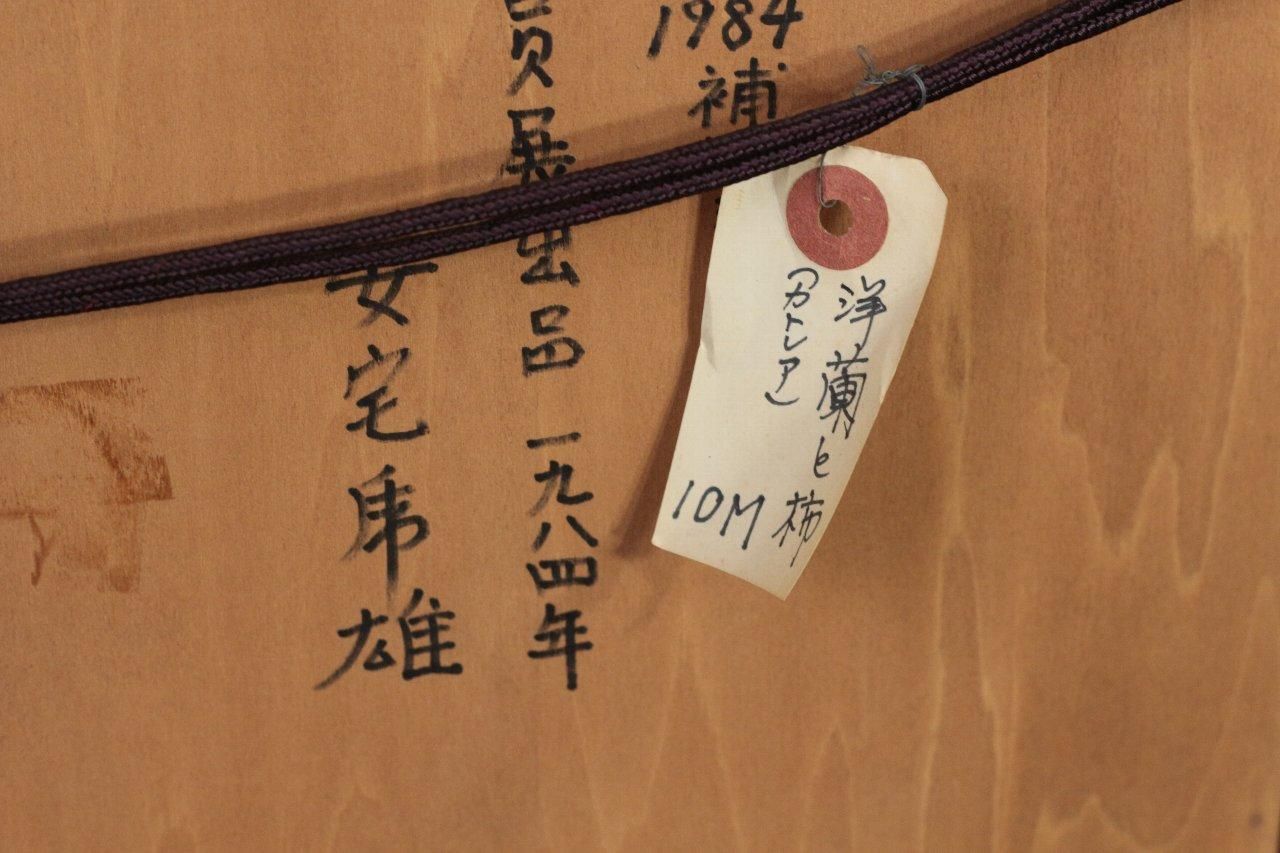 1984
補
員展出品 一九八四年
安宅乕雄
洋蘭と柿
(カトレア)
10M